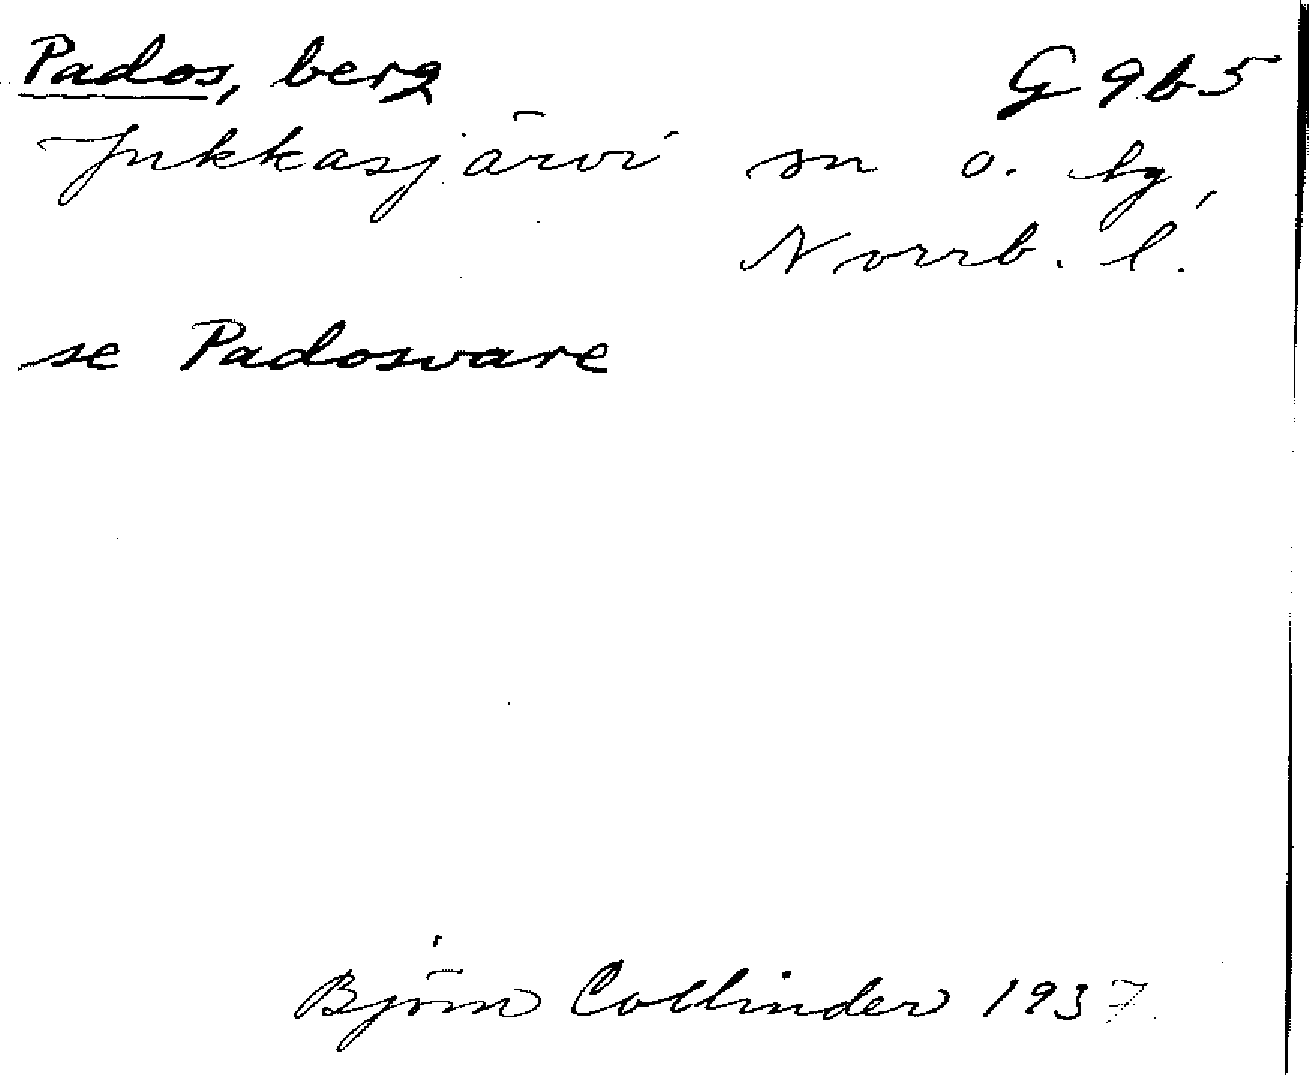 Pados, berg G 9b5
Jukkasjärvi sn o. tg,
Norrb. l.
se Padosvare
Björn Collinder 1937.